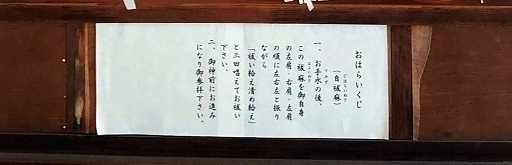 おはらいくじ
（自祓麻）
一、お手水の後、
この祓麻を御自身
の左肩・右肩・左肩
の順に左右左と振り
ながら
「祓い給え清め給え」
と三回唱えてお祓い
下さい。
二、御神前にお進み
になり御参拝下さい。